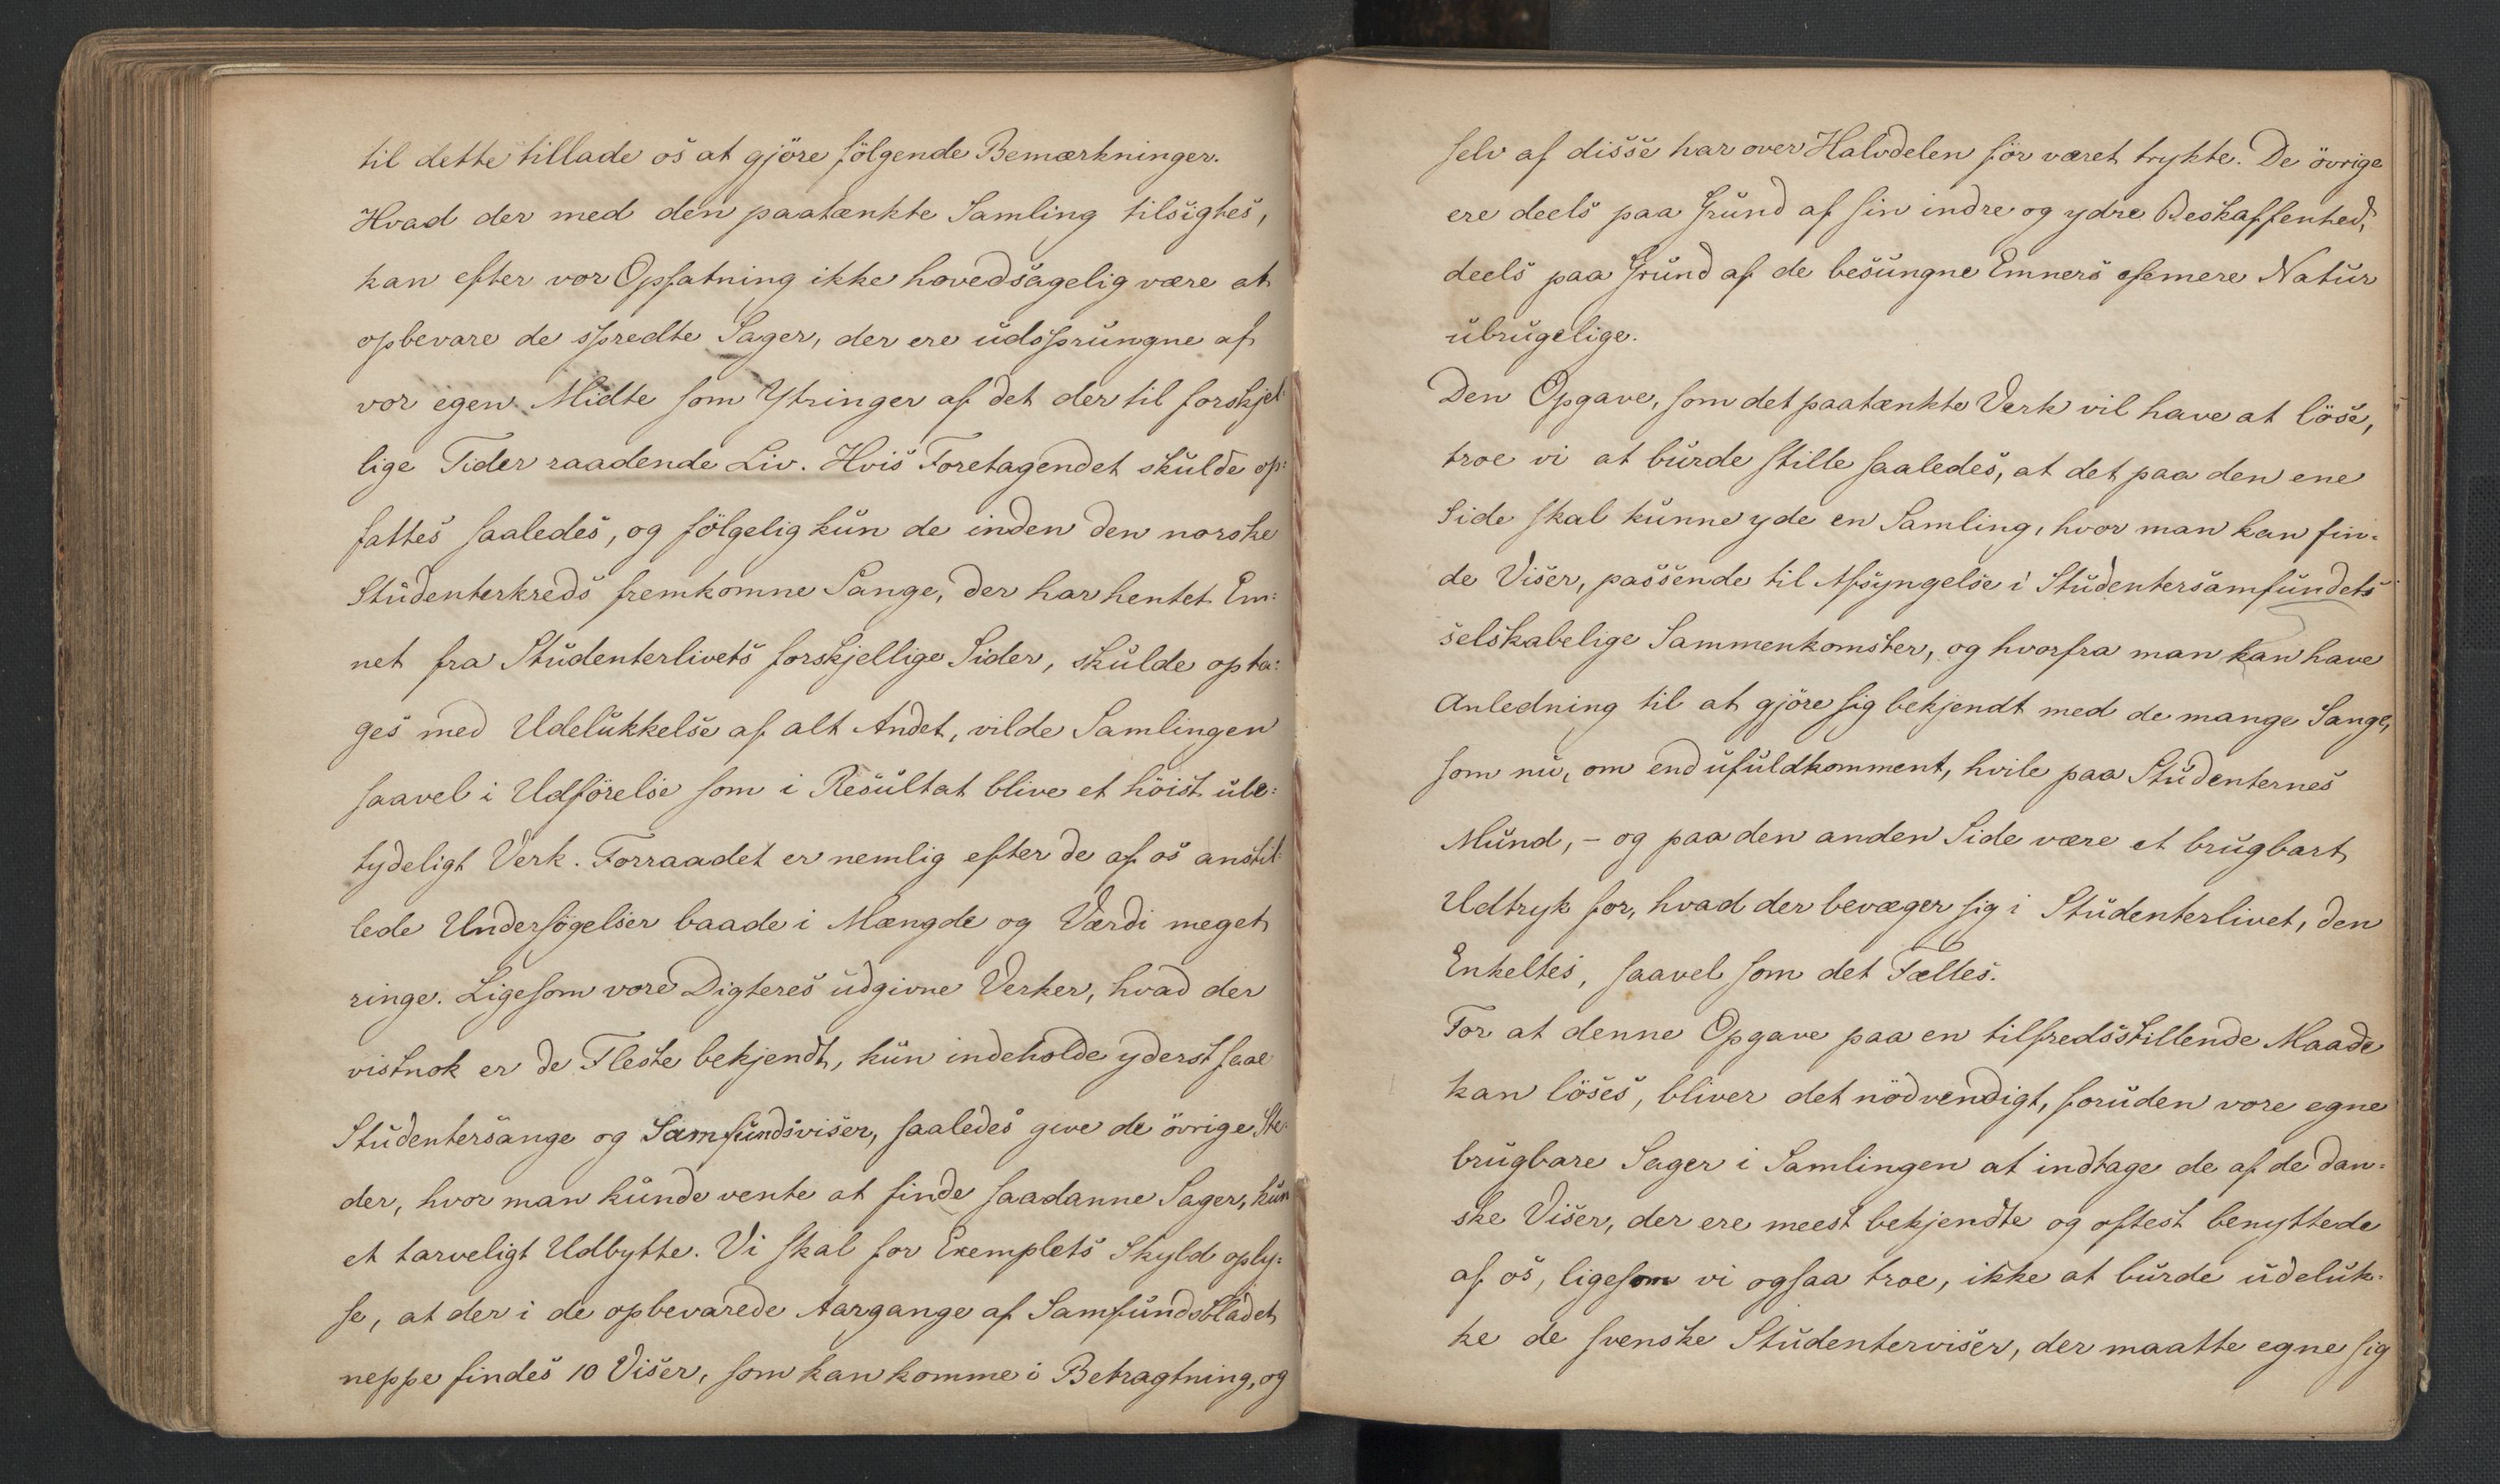 til dette tillade os at gjöre fölgende Bemærkninger.
Hvad der med den paatænkte Samling tilsigtes,
kan efter vor Opfatning ikke hovedsagelig være at
opbevare de spredte Sager, der ere udsprungne af
vor egen Midte som Ytringer af det der til forskjel=
lige Tider raadende Liv. Hvis Foretagendet skulde op=
fattes saaledes, og fölgelig kun de inden den norske
Studenterkreds fremkomne Sange, der har hentet Em=
net fra Studenterlivets forskjellige Sider, skulde opta=
ges med Udelukkelse af alt Andet, vilde Samlingen
saavel i Udförelse som i Resultat blive et höist ube=
tydeligt Verk. Forraadet er nemlig efter de af os anstil=
lede Undersögelser baade i Mængde og Værdi meget
ringe. Ligesom vore Digteres udgivne Verker, hvad der
vistnok er de Fleste bekjendt, kun indeholde yderst faae
Studentersange og Samfundsviser, saaledes give de övrige Ste=
der, hvor man kunde vente at finde saadanne Sager, kun
et tarveligt Udbytte. Vi skal for Exemplets Skyld oply=
se, at der i de opbevarede Aargange af Samfundsbladet
neppe findes 10 Viser, som kan komme i Betragtning, og
selv af disse har over Halvdelen för været trykte. De övrige
ere deels paa Grund af sin indre og ydre Beskaffenhed,
deels paa Grund af de besungne Emners efemere Natur
ubrugelige.
Den Opgave, som det paatænkte Verk vil have at löse,
troe vi at burde stille saaledes, at det paa den ene
Side skal kunne yde en Samling, hvor man kan fin=
de Viser, passende til Afsyngelse i Studentersamfundets
selskabelige Sammenkomster, og hvorfra man kan have
Anledning til at gjöre sig bekjendt med de mange Sange,
som nu, om end ufuldkomment, hvile paa Studenternes
Mund, – og paa den anden Side være et brugbart
Udtryk for, hvad der bevæger sig i Studenterlivet, den
Enkeltes, saavel som det Fælles.
For at denne Opgave paa en tilfredsstillende Maade
kan löses, bliver det nödvendigt, foruden vore egne
brugbare Sager i Samlingen at indtage de af de dan=
ske Viser, der ere meest bekjendte og oftest benyttede
af os, ligesom vi ogsaa troe, ikke at burde udeluk=
ke de svenske Studenterviser, der maatte egne sig